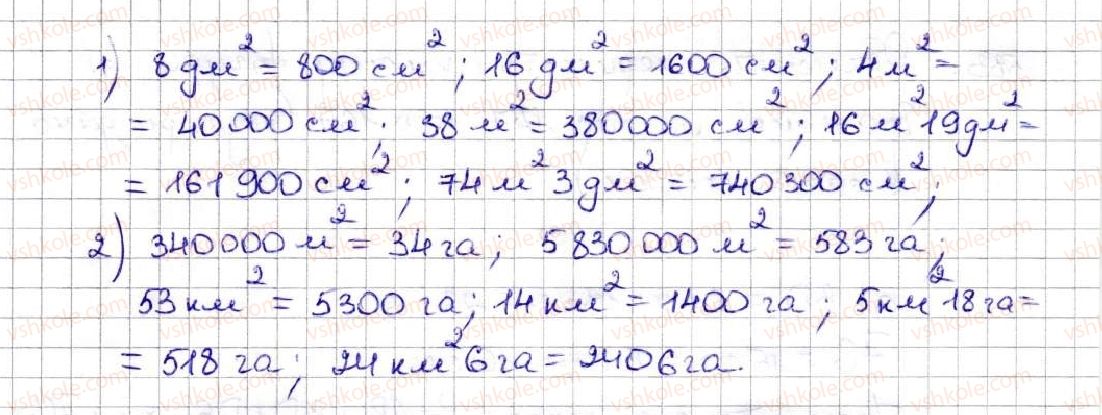 1) 8 дм² = 800 см²; 16 дм² = 1600 см²; 4 м² =
= 40000 см²; 38 м² = 380000 см²; 16 м² 19 дм² =
= 161 900 см²; 74 м² 3 дм² = 740 300 см²;
2) 340000 м² = 34 га; 5 830 000 м² = 583 га;
53 км² = 5300 га; 14 км² = 1400 га; 5 км² 18 га =
= 518 га; 24 км² 6 га = 2406 га.